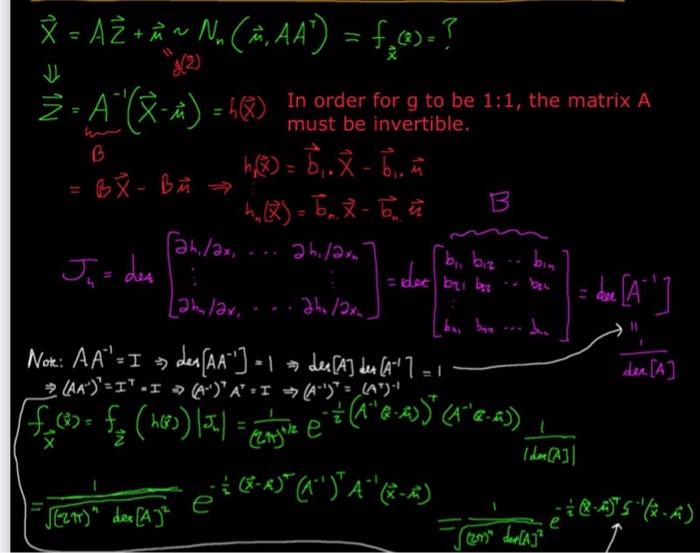 X⃗ = AZ⃗ + μ⃗ ~ Nₙ(μ⃗, AAᵀ) = f_X⃗(x⃗) = ?
⇓ = g(z⃗)
Z⃗ = A⁻¹(X⃗ - μ⃗) = h(x⃗) In order for g to be 1:1, the matrix A
must be invertible.
B
h₁(x⃗) = b⃗₁. · X⃗ - b⃗₁. μ⃗
= BX⃗ - Bμ⃗ ⇒ ⋮
hₙ(x⃗) = b⃗ₙ. X⃗ - b⃗ₙ. μ⃗
B
Jₕ = det [∂h₁/∂x₁ ... ∂h₁/∂xₙ ⋮ ⋮ ∂hₙ/∂x₁ ... ∂hₙ/∂xₙ] = det [b₁₁ b₁₂ ... b₁ₙ b₂₁ b₂₂ ... b₂ₙ ⋮ bₙ₁ bₙ₂ ... bₙₙ] = det [A⁻¹]
= 1/det[A]
Note: AA⁻¹ = I ⇒ det[AA⁻¹] = 1 ⇒ det[A] det[A⁻¹] = 1
⇒ (AA⁻¹)ᵀ = Iᵀ = I ⇒ (A⁻¹)ᵀ Aᵀ = I ⇒ (A⁻¹)ᵀ = (Aᵀ)⁻¹
f_X⃗(x⃗) = f_Z⃗(h(x⃗)) |Jₕ| = 1/(2π)^(n/2) e^(-½ (A⁻¹(x⃗-μ⃗))ᵀ (A⁻¹(x⃗-μ⃗))) 1/|det[A]|
= 1/√((2π)ⁿ det[A]²) e^(-½ (x⃗-μ⃗)ᵀ (A⁻¹)ᵀ A⁻¹ (x⃗-μ⃗)) = 1/√((2π)ⁿ det[A]²) e^(-½ (x⃗-μ⃗)ᵀ S⁻¹ (x⃗-μ⃗))